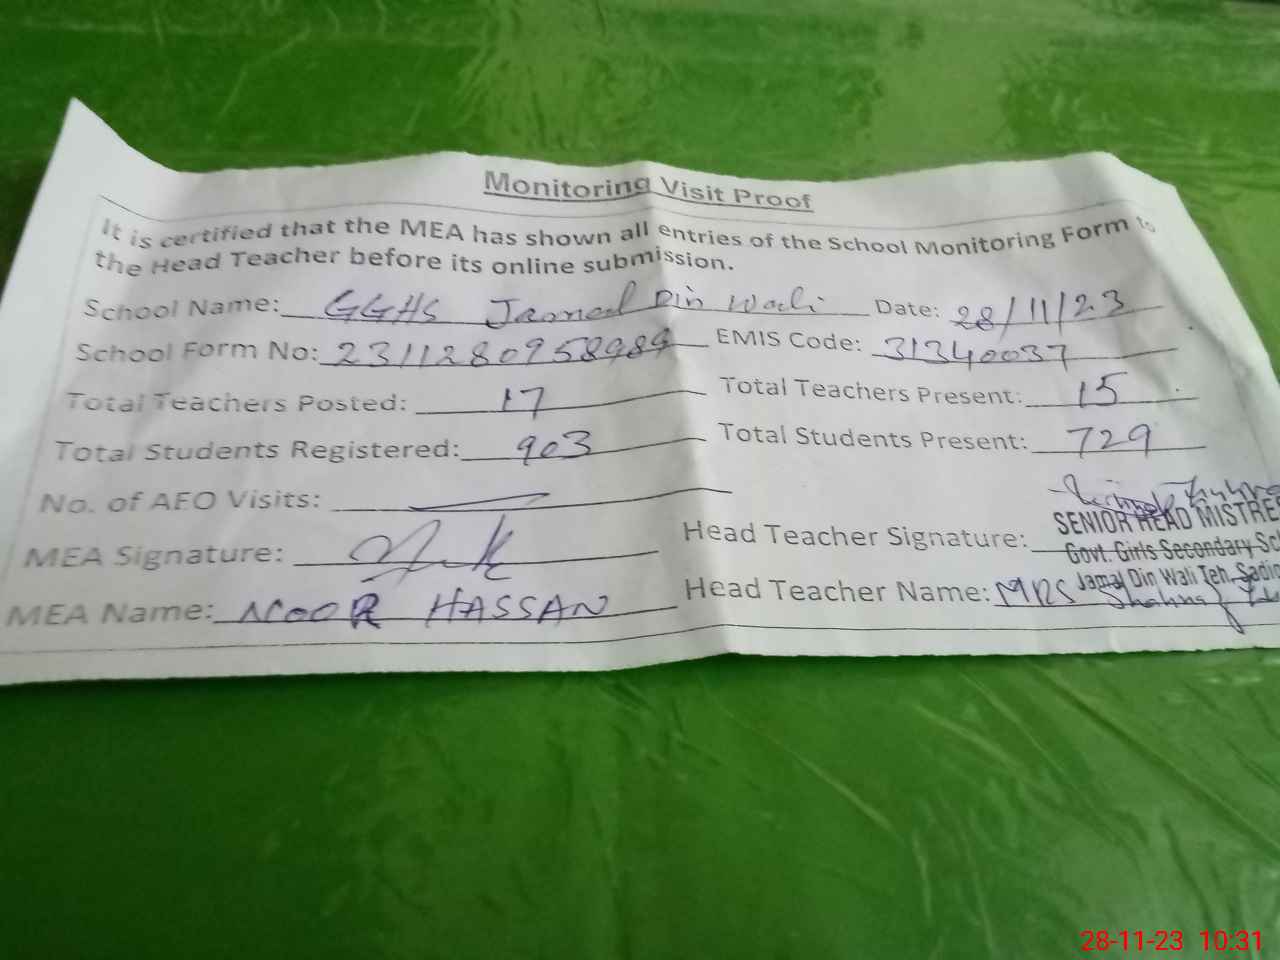 Monitoring Visit Proof
It is certified that the MEA has shown all entries of the School Monitoring Form to
the Head Teacher before its online submission.
School Name: GGHS Jamal Din Wali Date: 28/11/23
School Form No: 2311280958989 EMIS Code: 31340037
Total Teachers Posted: 17 Total Teachers Present: 15
Total Students Registered: 903 Total Students Present: 729
No. of AEO Visits:
MEA Signature: Head Teacher Signature:
SENIOR HEAD MISTRE
Govt. Girls Secondary Sc
Jamal Din Wali Teh. Sadiq
MEA Name: NOOR HASSAN Head Teacher Name: MRS Shahnaz
28-11-23 10:31